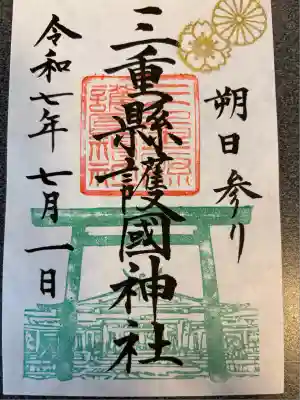 朔日参り
三重縣護國神社
令和七年七月一日